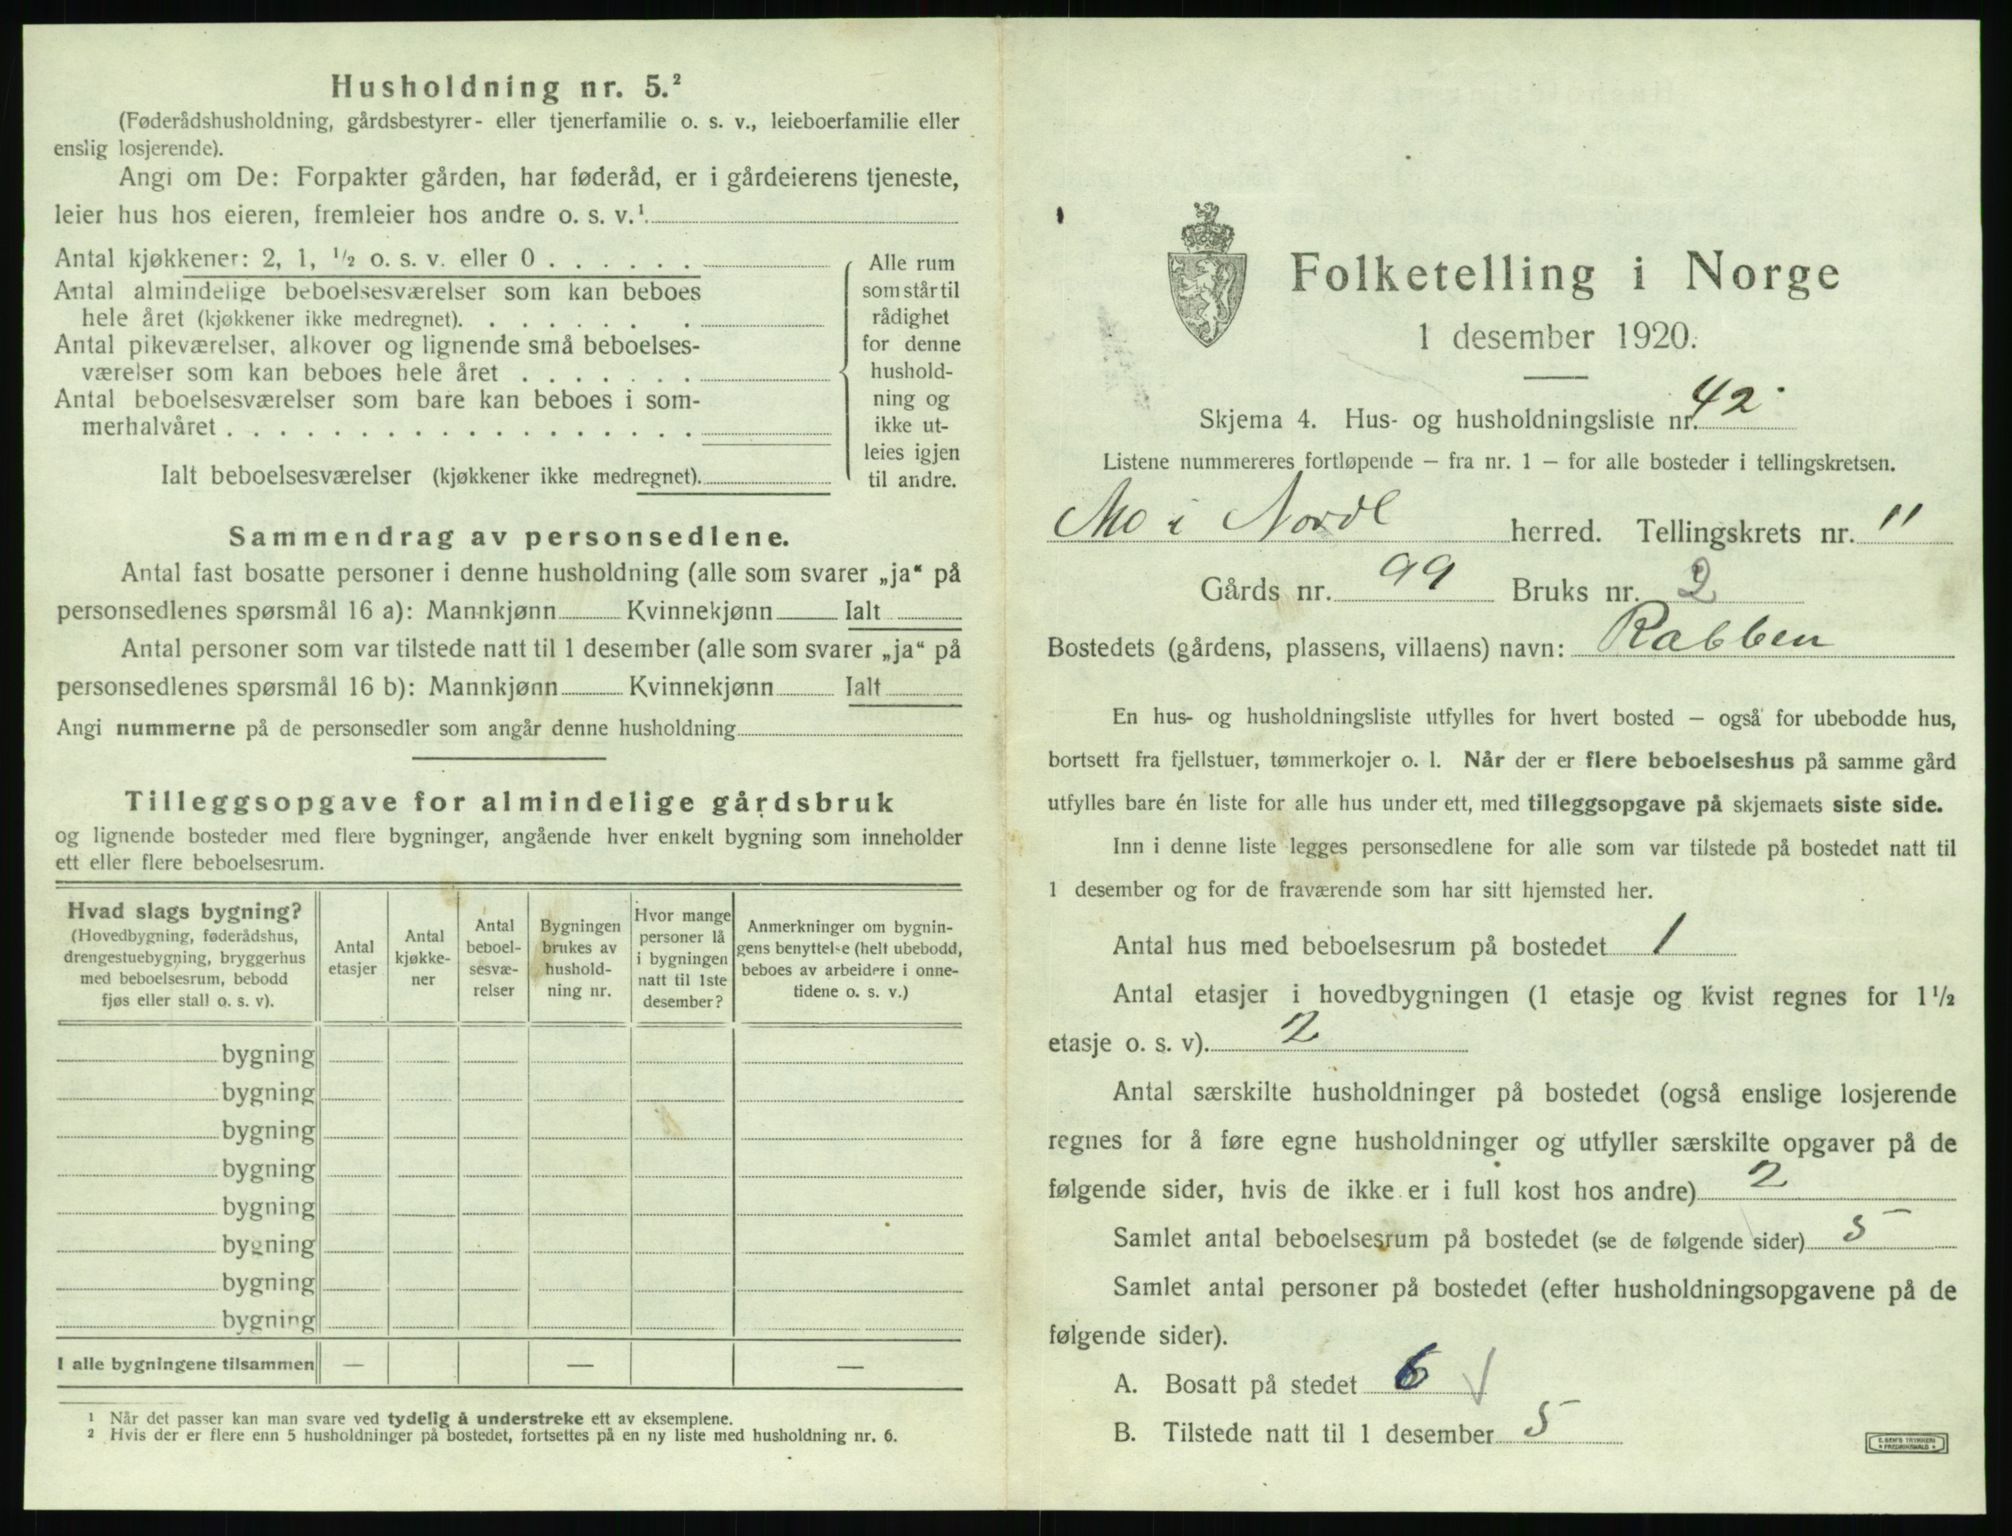 Husholdning nr. 5.²
(Føderådshusholdning, gårdsbestyrer- eller tjenerfamilie o. s. v., leieboerfamilie eller
enslig losjerende).
Angi om De: Forpakter gården, har føderåd, er i gårdeierens tjeneste,
leier hus hos eieren, fremleier hos andre o. s. v.¹
Antal kjøkkener: 2, 1, ½ o. s. v. eller 0 . . . . . .
Antal almindelige beboelsesværelser som kan beboes
hele året (kjøkkener ikke medregnet). . . . . . . .
Antal pikeværelser, alkover og lignende små beboelses-
værelser som kan beboes hele året . . . . . . .
Antal beboelsesværelser som bare kan beboes i som-
merhalvåret . . . . . . . . . . . . . . . . . .
Ialt beboelsesværelser (kjøkkener ikke medregnet).
Alle rum
som står til
rådighet
for denne
hushold-
ning og
ikke ut-
leies igjen
til andre.
Sammendrag av personsedlene.
Antal fast bosatte personer i denne husholdning (alle som svarer „ja“ på
personsedlenes spørsmål 16 a): Mannkjønn Kvinnekjønn Ialt
Antal personer som var tilstede natt til 1 desember (alle som svarer „ja“ på
personsedlenes spørsmål 16 b): Mannkjønn Kvinnekjønn Ialt
Angi nummerne på de personsedler som angår denne husholdning
Tilleggsopgave for almindelige gårdsbruk
og lignende bosteder med flere bygninger, angående hver enkelt bygning som inneholder
ett eller flere beboelsesrum.
Hvad slags bygning?
(Hovedbygning, føderådshus,
drengestuebygning, bryggerhus
med beboelsesrum, bebodd
fjøs eller stall o. s. v).
Antal
etasjer
Antal
kjøkke-
ner
Antal
beboel-
sesvæ-
relser
Bygningen
brukes av
hushold-
ning nr.
Hvor mange
personer lå
i bygningen
natt til 1ste
desember?
Anmerkninger om bygnin-
gens benyttelse (helt ubebodd,
beboes av arbeidere i onne-
tidene o. s. v.)
bygning
bygning
bygning
bygning
bygning
bygning
bygning
bygning
I alle bygningene tilsammen — — —
¹ Når det passer kan man svare ved tydelig å understreke ett av eksemplene.
² Hvis der er flere enn 5 husholdninger på bostedet, fortsettes på en ny liste med husholdning nr. 6.
Folketelling i Norge
1 desember 1920.
Skjema 4. Hus- og husholdningsliste nr. 42
Listene nummereres fortløpende — fra nr. 1 — for alle bosteder i tellingskretsen.
Mo i Nordl herred. Tellingskrets nr. 11
Gårds nr. 99 Bruks nr. 2
Bostedets (gårdens, plassens, villaens) navn: Rabben
En hus- og husholdningsliste utfylles for hvert bosted — også for ubebodde hus,
bortsett fra fjellstuer, tømmerkojer o. l. Når der er flere beboelseshus på samme gård
utfylles bare én liste for alle hus under ett, med tilleggsopgave på skjemaets siste side.
Inn i denne liste legges personsedlene for alle som var tilstede på bostedet natt til
1 desember og for de fraværende som har sitt hjemsted her.
Antal hus med beboelsesrum på bostedet 1
Antal etasjer i hovedbygningen (1 etasje og kvist regnes for 1½
etasje o. s. v). 2
Antal særskilte husholdninger på bostedet (også enslige losjerende
regnes for å føre egne husholdninger og utfyller særskilte opgaver på de
følgende sider, hvis de ikke er i full kost hos andre) 2
Samlet antal beboelsesrum på bostedet (se de følgende sider) 5
Samlet antal personer på bostedet (efter husholdningsopgavene på de
følgende sider).
A. Bosatt på stedet 6 √
B. Tilstede natt til 1 desember 5